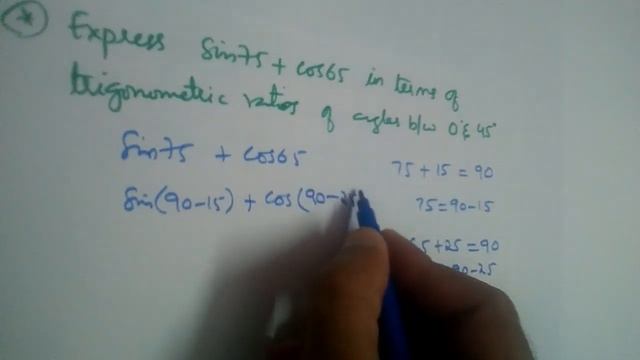 * Express Sin75 + cos65 in terms of
trigonometric ratios of angles b/w 0 & 45°
Sin75 + cos65
75 + 15 = 90
Sin(90-15) + cos(90-25
75 = 90-15
5+25 = 90
90-25